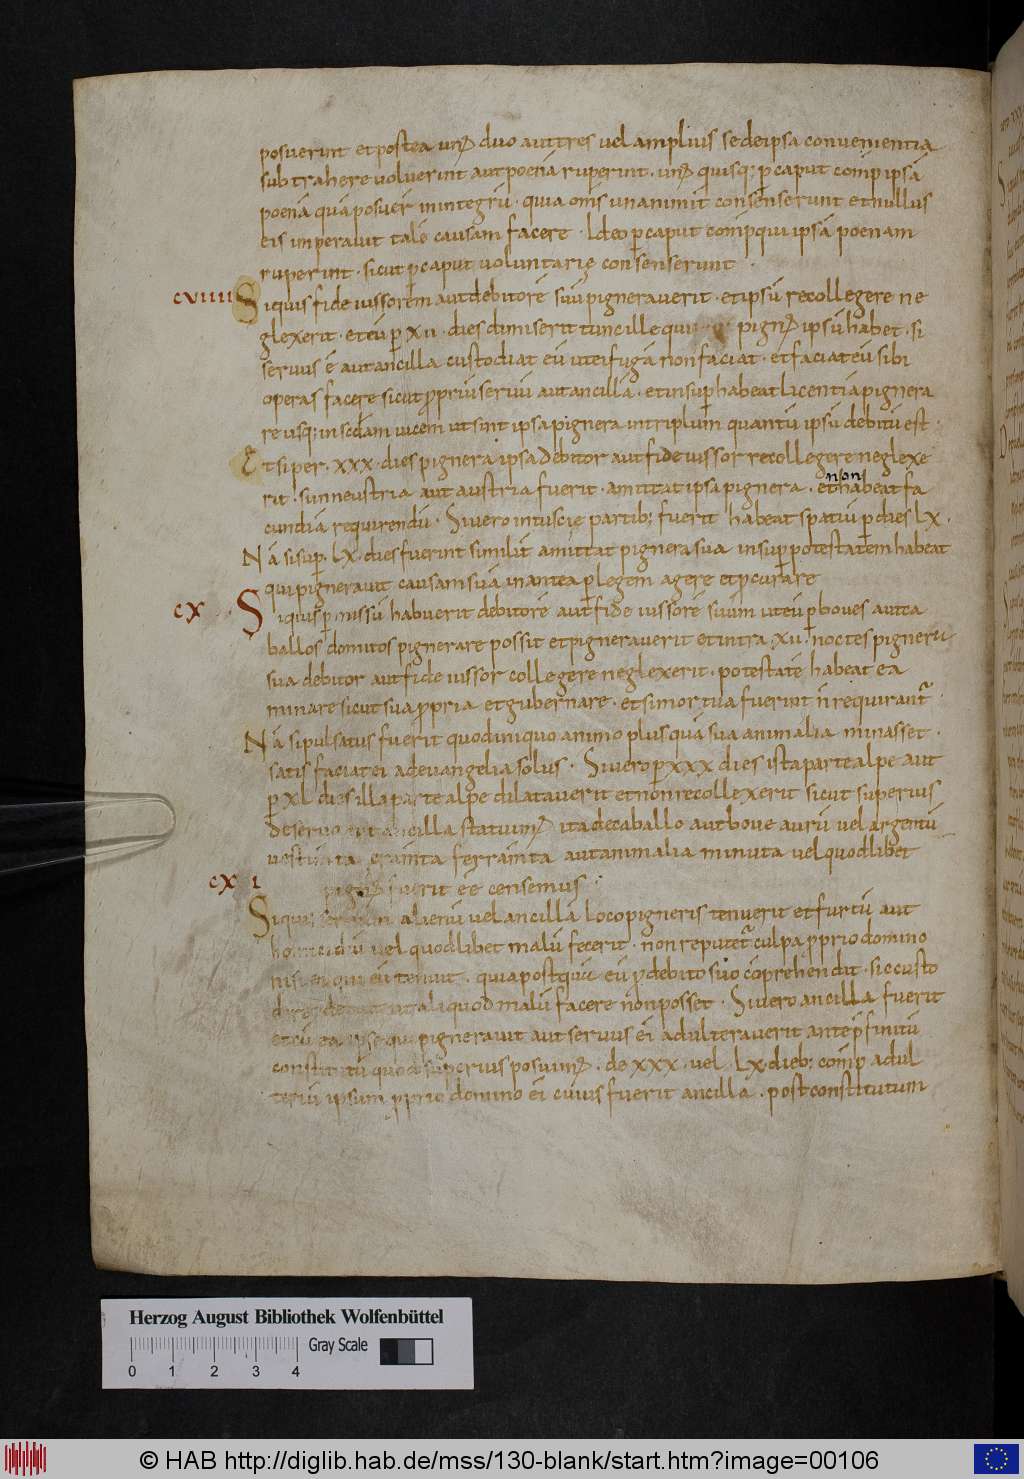 posuerint et postea unꝰ duo aut tres vel amplius se de ipsa convenientia
subtrahere voluerint aut poenā ruperint. unꝰ quisq; ꝑ caput comp̄ ipsā
poenā quā posuer̄ in integrū. quia om̄s unanimit̄ consenserunt et nullus
eis imperavit talē causam facere. Ideo ꝑ caput comp̄ qui ipsā poenam
ruperint. sicut ꝑ caput voluntarię consenserunt.
cviiii Siquis fideiussorem aut debitorē suū pigneraverit. et ipsū recollegere ne
glexerit. et eū ꝑ xii. dies dimiserit tunc ille qui pignꝰ ipsū habet. si
servus ē aut ancilla custodiat eū ut ei fugā non faciat. et faciat eū sibi
operas facere sicut ꝓpriū servū aut ancillā. et insuꝑ habeat licentiā pignera
re usq; in sc̄dam vicem ut sint ipsa pignera in triplum quantū ipsū debitū est.
Et si per. xxx. dies pignera ipsa debitor aut fideiussor recollegere neglexe
rit. si in neustria aut austria fuerit. amittat ipsa pignera. et non habeat fa
cundiā requirendū. Si vero in tuscię partib; fuerit habeat spatiū ꝑ dies lx.
Nā si suꝑ. lx. dies fuerint similit̄ amittat pignera sua insuꝑ potestatem habeat
qui pigneravit causam suā in antea ꝑ legem agere et ꝓcurare
cx. Siquis ꝑmissū habuerit debitorē aut fideiussorē suum ut eū ꝑ boves aut ca
ballos domitos pignerare possit et pigneraverit et intra xii. noctes pignera
sua debitor aut fideiussor collegere neglexerit. potestatē habeat ea
minare sicut sua ꝓpria et gubernare. et si mortua fuerint n̄ requirant̄.
Nā si pulsatus fuerit quod iniquo animo plus quā sua animalia minasset.
satisfaciat ei ad evangelia solus. Si vero ꝑ xxx dies ista parte alpe aut
ꝑ xl dies illa parte alpe dilataverit et non recollexerit sicut superius
de servo aut ancilla statuimꝰ ita de caballo aut bove aurū vel argentū
vestimta eramta ferramta aut animalia minuta vel quodlibet
cxi pignꝰ fuerit eē censemus.
Siquis servum alienū vel ancillā loco pigneris tenuerit et furtū aut
homicidiū vel quodlibet malū fecerit. non reputet̄ culpa ꝓprio domino
nisi ei qui eū tenuit. quia postquā eū ꝓ debito suo cōprehendit. sic custo
dire debuit ut aliquod malū facere non posset. Si vero ancilla fuerit
et cū ea ipse qui pigneravit aut servus ei adulteraverit ante p̄finitū
constitutū quod superius posuimꝰ. de xxx. vel. lx. dieb; comp̄ adul
teriū ipsum ꝓprio domino ei cuius fuerit ancilla. post constitutum
Herzog August Bibliothek Wolfenbüttel
Gray Scale
0 1 2 3 4
© HAB http://diglib.hab.de/mss/130-blank/start.htm?image=00106